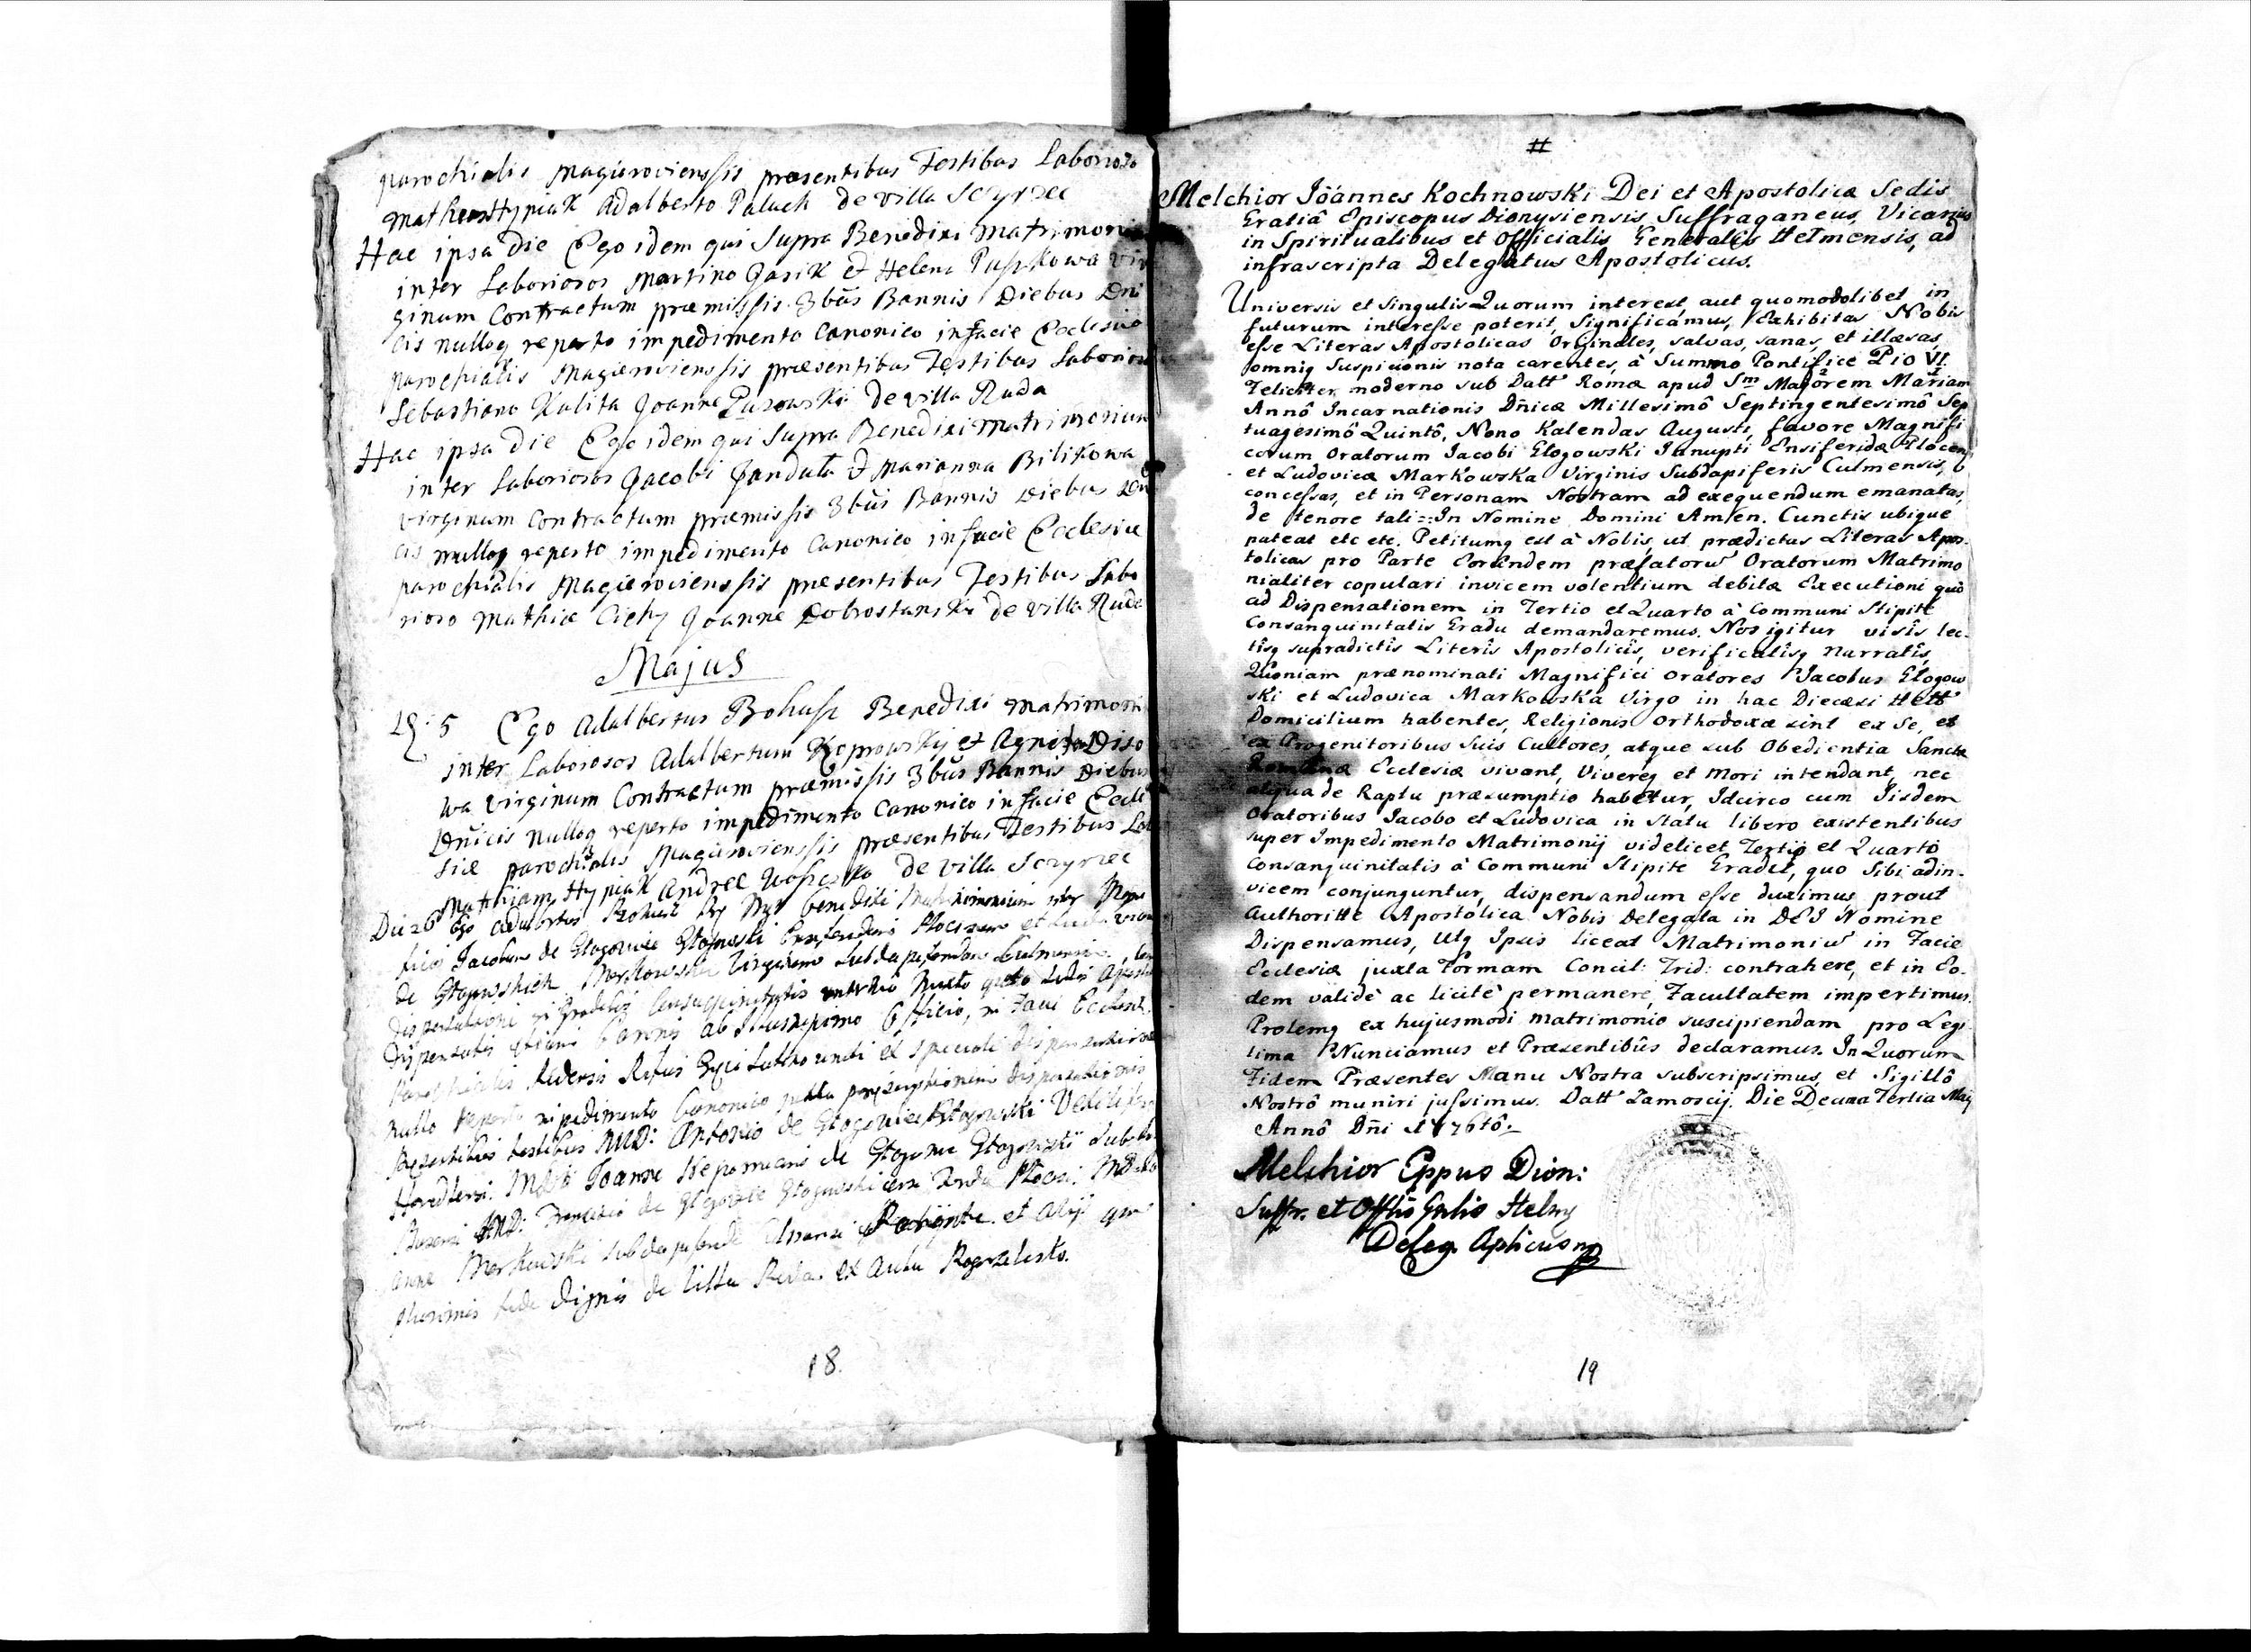 parochialis Magierovienssis præsentibus Testibus Laborioso
Hypiak Adalberto Paluch de villa Sczyrzec
Hac ipsa die Ego idem qui supra Benedixi matrimoni
inter Laboriosos Martino Jasik et Helena vir
ginum Contractum præmissis 3bus Bannis Diebus Dni
cis nulloq reperto impedimento Canonico in facie Ecclesiæ
parochialis Magierovienssis præsentibus Testibus Laborios
Sebastiano Kalita Joanne de villa Ruda
Hac ipsa die Ego idem qui supra Benedixi matrimonium
inter Laboriosos Jacobi Panduła et Marianna Bilikowa
virginum Contractum præmissis 3bus Bannis Diebus Dni
cis nulloq reperto impedimento Canonico in facie Ecclesiæ
parochialis Magierovienssis præsentibus Testibus Labo
rioso Mathia Cichy Joanne Dobrostanski de villa Ruda
Majus
5 Ego Adalbertus Bohusz Benedixi matrimoni
inter Laboriosos Adalbertum Koprowskij et
wa virginum Contractum præmissis 3bus Bannis Diebus
Dnicis nulloq reperto impedimento Canonico in facie Eccle
siæ parochialis Magierovienssis præsentibus Testibus Lab
Mathiam Hypiak Andree de villa Sczyrzec
Die 26 Ego Adalbertus Bohusz benedixi Matrimonium inter Magni
ficos Jacobum de Głogowiec Głogowski et
de Głogowskich Markowska Virginem
dispensatione in gradibus Consanguinitatis
dispensatis etiam bannis ab Officio, in Facie Ecclesiæ
Parochialis Ritus ex speciali dispensatione
nullo reperto impedimento Canonico juxta dispensationis
Præsentibus testibus MD: Antonio de Głogowiec Głogowski
Joanne Nepomuceno de Głogowiec Głogowski
MD: Francisco de Głogowiec Głogowski
Markowski et Alij qm
plurimis fide dignis de Villa Ruda ex Aula
18.
#
Melchior Jôánnes Kochnowski Dei et Apostolicæ Sedis
Gratiâ Episcopus Dionysiensis, Suffraganeus, Vicarius
in Spiritualibus et Officialis Generalis Helmensis, ad
infrascripta Delegatus Apostolicus.
Universis et singulis Quorum interest, aut quomodolibet in
futurum interesse poterit, Significamus, Exhibitas Nobis
esse Literas Apostolicas Orginales, salvas, sanas, et illæsas,
omniq Suspicionis nota carentes, à Summo Pontifice Pio VI
Feliciter moderno sub Datt Romæ apud Sm Majorem Mariam
Annô Incarnationis Dñicæ Millesimô Septingentesimô Sep
tuagesimô Quintô, Nono Kalendas Augusti, favore Magnifi
corum Oratorum Jacobi Głogowski Innupti Ensiferidæ Plocen:
et Ludovicæ Markowska Virginis Subdapiferis Culmensis,
concessas, et in Personam Nostram ad exequendum emanatas,
de tenore tali:=In Nomine Domini Amen. Cunctis ubique
pateat etc etc. Petitumq est à Nobis, ut prædictas Literas Apos-
tolicas pro Parte Eorundem præfatorum Oratorum Matrimo
nialiter copulari invicem volentium debitæ Executioni quò
ad Dispensationem in Tertio et Quarto à Communi Stipite
Consanguinitatis Gradu demandaremus. Nos igitur visîs lec-
tîsq supradictîs Literîs Apostolicîs, verificatîsq Narratîs,
Quoniam prænominati Magnifici Oratores Jacobus Głogow
ski et Ludovica Markowska Virgo in hac Diæcesi Helt
Domicilium habentes, Religionis Orthodoxæ sint ex Se, et
ex Progenitoribus Suis Cultores, atque sub Obedientia Sanctæ
Romanæ Ecclesiæ vivant, Vivereq et Mori intendant, nec
aliqua de Raptu præsumptio habetur, Idcirco cum Iisdem
Oratoribus Jacobo et Ludovica in statu libero existentibus
super Impedimento Matrimonij videlicet Tertio et Quarto
Consanguinitatis à Communi Stipite Gradu, quo Sibi adin-
vicem conjunguntur, dispensandum esse duximus, prout
Authoritte Apostolica Nobis Delegata in DEI Nomine
Dispensamus, Utq Ipsis liceat Matrimonium in Facie
Ecclesiæ juxta Formam Concil: Trid: contrahere, et in Eo-
dem validè ac licitè permanere, Facultatem impertimus.
Prolemq ex hujusmodi matrimonio suscipiendam pro Legi
tima Nunciamus et Præsentibûs declaramus. In Quorum
Fidem Præsentes Manu Nostra subscripsimus, et Sigillô
Nostrô muniri jussimus. Datt Zamoscij. Die Decima Tertia Maij
Annô Dñi 1776tô.
Melchior Eppus Dion:
Suffr. et Offlis Gnlis Helms
Deleg. Aplicus mp
19